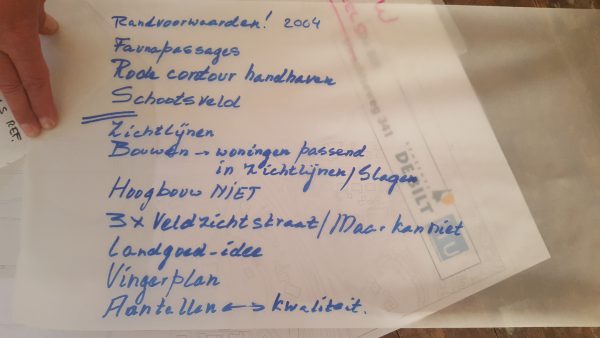 Randvoorwaarden! 2004
Faunapassages
Rode contour handhaven
Schootsveld
Zichtlijnen
Bouwen → woningen passend
in Zichtlijnen/Slagen
Hoogbouw NIET
3x Veldzichtstraat/Maar kan niet
Landgoed-idee
Vingerplan
Aantallen ↔ kwaliteit.
DE BILT
S REF.